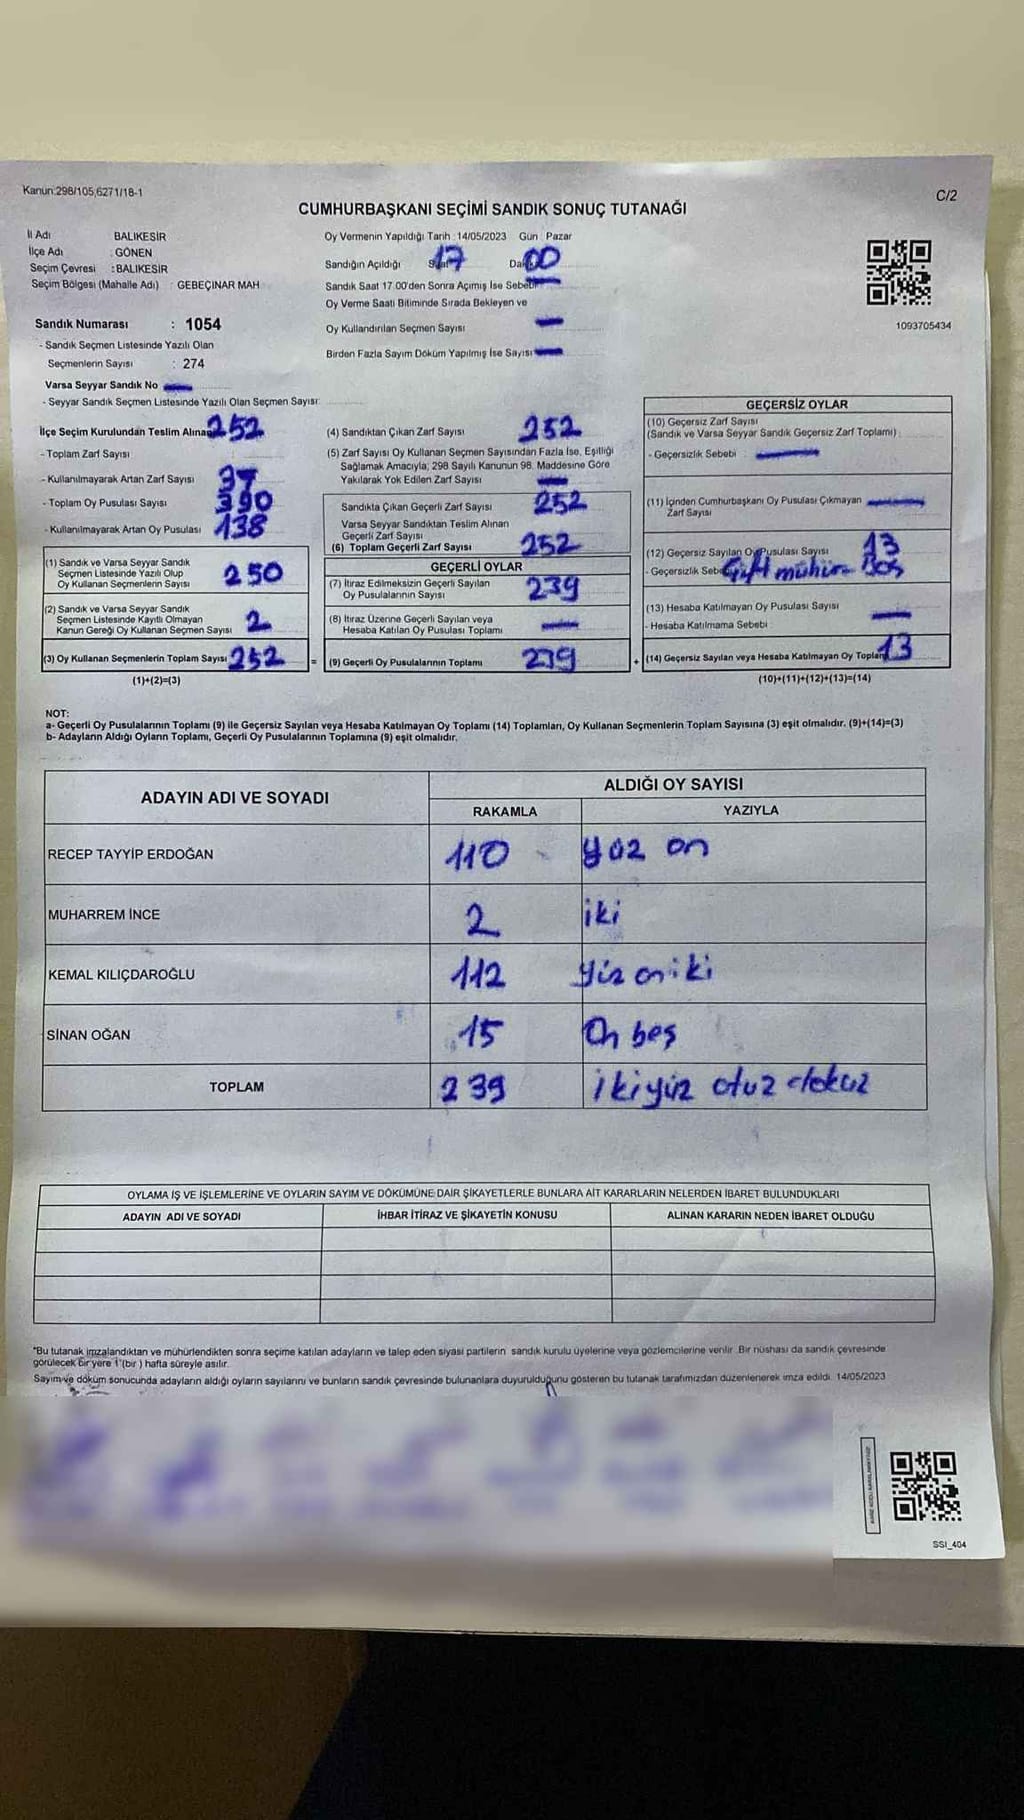 Kanun:298/105,6271/18-1
C/2
CUMHURBAŞKANI SEÇİMİ SANDIK SONUÇ TUTANAĞI
İl Adı BALIKESİR
İlçe Adı : GÖNEN
Seçim Çevresi : BALIKESİR
Seçim Bölgesi (Mahalle Adı) : GEBEÇINAR MAH
Sandık Numarası : 1054
- Sandık Seçmen Listesinde Yazılı Olan
Seçmenlerin Sayısı : 274
Varsa Seyyar Sandık No
- Seyyar Sandık Seçmen Listesinde Yazılı Olan Seçmen Sayısı:
Oy Vermenin Yapıldığı Tarih : 14/05/2023 Gün : Pazar
Sandığın Açıldığı Saat 17 Dak 00
Sandık Saat 17.00'den Sonra Açımış İse Sebebi
Oy Verme Saati Bitiminde Sırada Bekleyen ve
Oy Kullandırılan Seçmen Sayısı
Birden Fazla Sayım Döküm Yapılmış İse Sayısı
1093705434
İlçe Seçim Kurulundan Teslim Alınan 252
- Toplam Zarf Sayısı
- Kullanılmayarak Artan Zarf Sayısı 37
- Toplam Oy Pusulası Sayısı 390
- Kullanılmayarak Artan Oy Pusulası 138
(1) Sandık ve Varsa Seyyar Sandık
Seçmen Listesinde Yazılı Olup
Oy Kullanan Seçmenlerin Sayısı 250
(2) Sandık ve Varsa Seyyar Sandık
Seçmen Listesinde Kayıtlı Olmayan
Kanun Gereği Oy Kullanan Seçmen Sayısı 2
(3) Oy Kullanan Seçmenlerin Toplam Sayısı 252 =
(1)+(2)=(3)
(4) Sandıktan Çıkan Zarf Sayısı 252
(5) Zarf Sayısı Oy Kullanan Seçmen Sayısından Fazla İse, Eşitliği
Sağlamak Amacıyla; 298 Sayılı Kanunun 98. Maddesine Göre
Yakılarak Yok Edilen Zarf Sayısı
Sandıkta Çıkan Geçerli Zarf Sayısı 252
Varsa Seyyar Sandıktan Teslim Alınan
Geçerli Zarf Sayısı
(6) Toplam Geçerli Zarf Sayısı 252
GEÇERLİ OYLAR
(7) İtiraz Edilmeksizin Geçerli Sayılan
Oy Pusulalarının Sayısı 239
(8) İtiraz Üzerine Geçerli Sayılan veya
Hesaba Katılan Oy Pusulası Toplamı
(9) Geçerli Oy Pusulalarının Toplamı 239 +
GEÇERSİZ OYLAR
(10) Geçersiz Zarf Sayısı
(Sandık ve Varsa Seyyar Sandık Geçersiz Zarf Toplamı)
- Geçersizlik Sebebi
(11) İçinden Cumhurbaşkanı Oy Pusulası Çıkmayan
Zarf Sayısı
(12) Geçersiz Sayılan Oy Pusulası Sayısı 13
- Geçersizlik Sebebi Çift mühür Boş
(13) Hesaba Katılmayan Oy Pusulası Sayısı
- Hesaba Katılmama Sebebi
(14) Geçersiz Sayılan veya Hesaba Katılmayan Oy Toplamı 13
(10)+(11)+(12)+(13)=(14)
NOT:
a- Geçerli Oy Pusulalarının Toplamı (9) ile Geçersiz Sayılan veya Hesaba Katılmayan Oy Toplamı (14) Toplamları, Oy Kullanan Seçmenlerin Toplam Sayısına (3) eşit olmalıdır. (9)+(14)=(3)
b- Adayların Aldığı Oyların Toplamı, Geçerli Oy Pusulalarının Toplamına (9) eşit olmalıdır.
ADAYIN ADI VE SOYADI
ALDIĞI OY SAYISI
RAKAMLA YAZIYLA
RECEP TAYYİP ERDOĞAN 110 yüz on
MUHARREM İNCE 2 iki
KEMAL KILIÇDAROĞLU 112 yüz oniki
SİNAN OĞAN 15 On beş
TOPLAM 239 ikiyüz otuz dokuz
OYLAMA İŞ VE İŞLEMLERİNE VE OYLARIN SAYIM VE DÖKÜMÜNE DAİR ŞİKAYETLERLE BUNLARA AİT KARARLARIN NELERDEN İBARET BULUNDUKLARI
ADAYIN ADI VE SOYADI İHBAR İTİRAZ VE ŞİKAYETİN KONUSU ALINAN KARARIN NEDEN İBARET OLDUĞU
*Bu tutanak imzalandıktan ve mühürlendikten sonra seçime katılan adayların ve talep eden siyasi partilerin sandık kurulu üyelerine veya gözlemcilerine verilir. Bir nüshası da sandık çevresinde
görülecek bir yere 1 (bir ) hafta süreyle asılır.
Sayım ve döküm sonucunda adayların aldığı oyların sayılarını ve bunların sandık çevresinde bulunanlara duyurulduğunu gösteren bu tutanak tarafımızdan düzenlenerek imza edildi. 14/05/2023
SSI_404